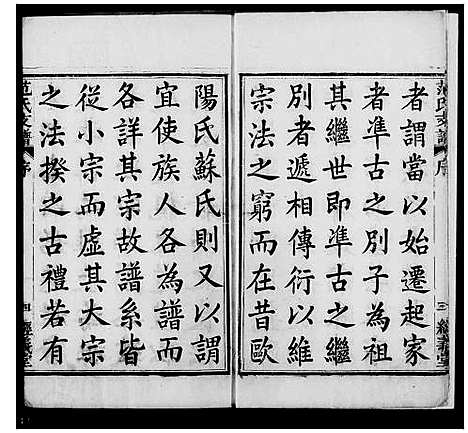 范氏支譜
序
三
經義堂
者謂當以始遷起家
者準古之別子為祖
其繼世即準古之繼
別者遞相傳衍以維
宗法之窮而在昔歐
陽氏蘇氏則又以謂
宜使族人各為譜而
各詳其宗故譜系皆
從小宗而虛其大宗
之法揆之古禮若有
范氏支譜
序
四
經義堂